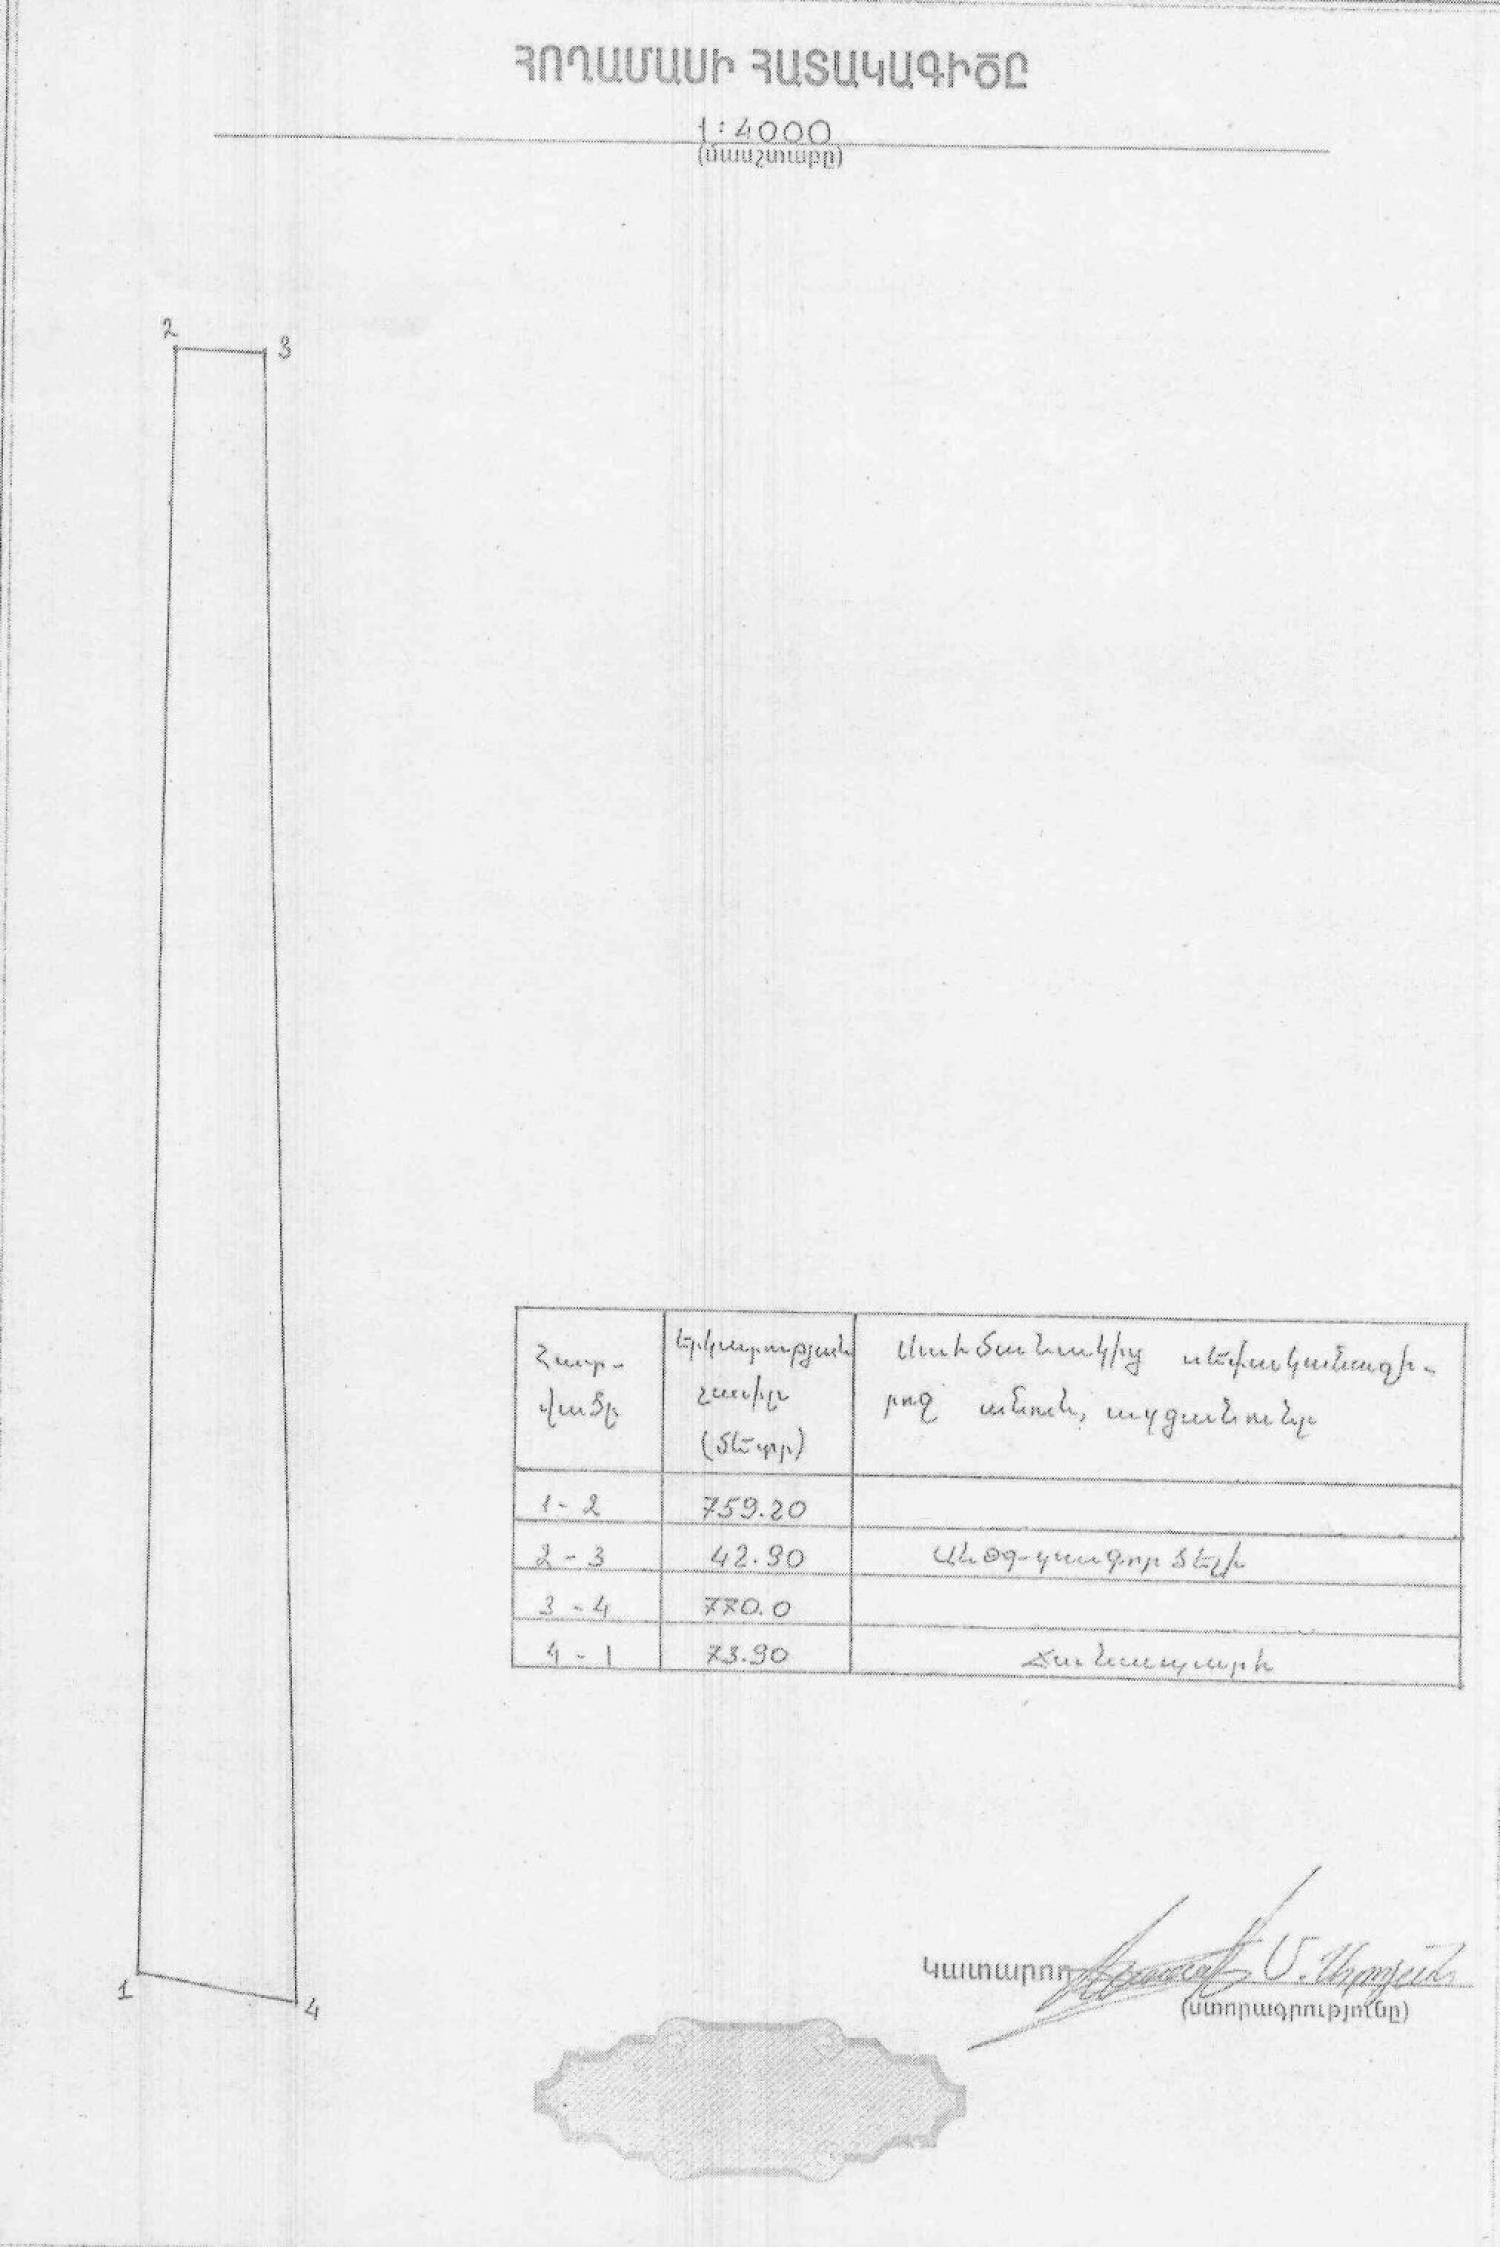 ՀՈՂԱՄԱՍԻ ՀԱՏԱԿԱԳԻԾԸ
1:4000
(մասշտաբը)
2
3
Հատ-
վածը
Երկարության
չափը
(մետր)
Սահմանակից սեփականատի-
րոջ անուն, ազգանունը
1-2
759.20
2-3
42.90
3-4
770.0
4-1
73.90
Ճանապարհ
1
4
Կատարող
(ստորագրությունը)